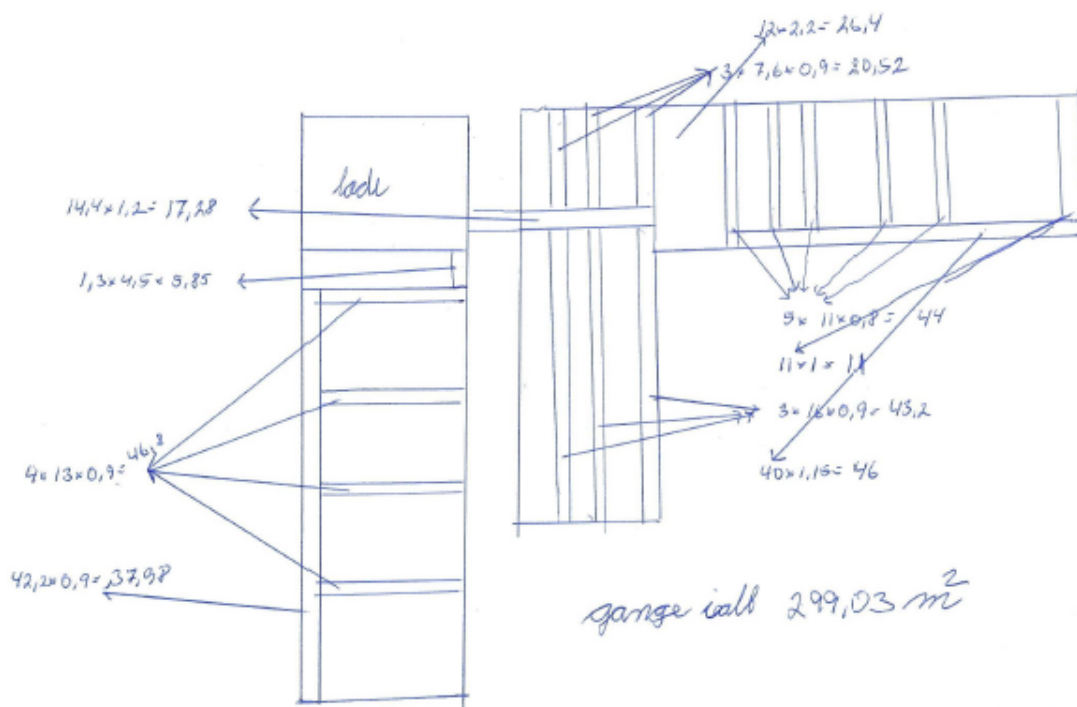 12×2,2=26,4
3×7,6×0,9=20,52
lade
14,4×1,2=17,28
1,3×4,5×5,85
5×11×0,8= 44
11×1×11
3×16×0,9=43,2
40×1,15=46
4×13×0,9=46,8
42,2×0,9=37,98
gange ialt 299,03 m²